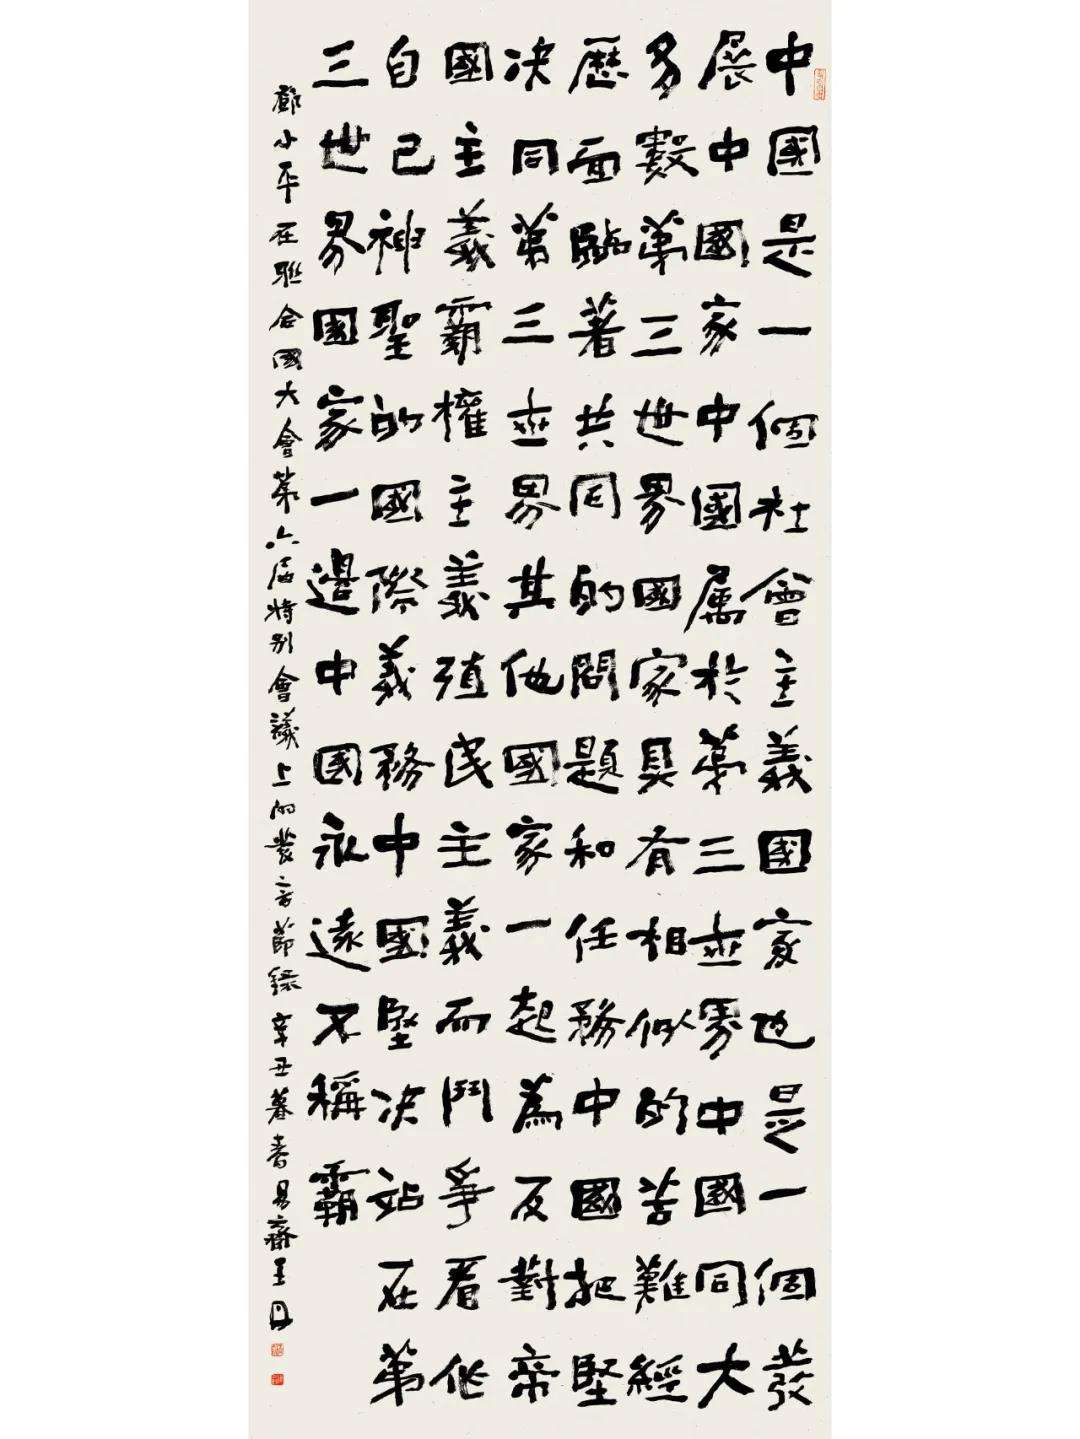 中國是一個社會主義國家也是一個發
展中國家中國屬於第三世界中國同大
多數第三世界國家具有相似的苦難經
歷面臨著共同的問題和任務中國把堅
决同第三世界其他國家一起為反對帝
國主義霸權主義殖民主義而鬥爭看作
自己神聖的國際義務中國堅决站在第
三世界國家一邊中國永遠不稱霸
鄧小平在聯合國大會第六屆特別會議上的發言節録辛丑暮春易齋王丹